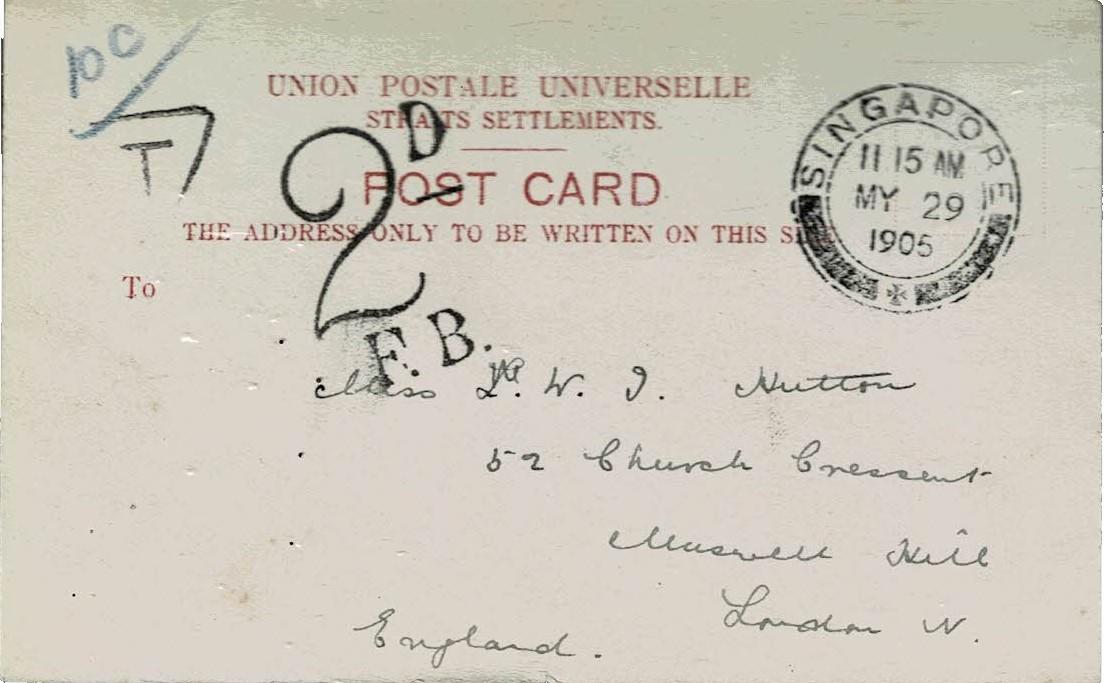 10 C
T
UNION POSTALE UNIVERSELLE
STRAITS SETTLEMENTS.
2D
POST CARD
THE ADDRESS ONLY TO BE WRITTEN ON THIS
F.B.
SINGAPORE
11 15 AM
MY 29
1905
To
Miss W. I. Hutton
52 Church Cressent
Muswell Hill
London N.
England.